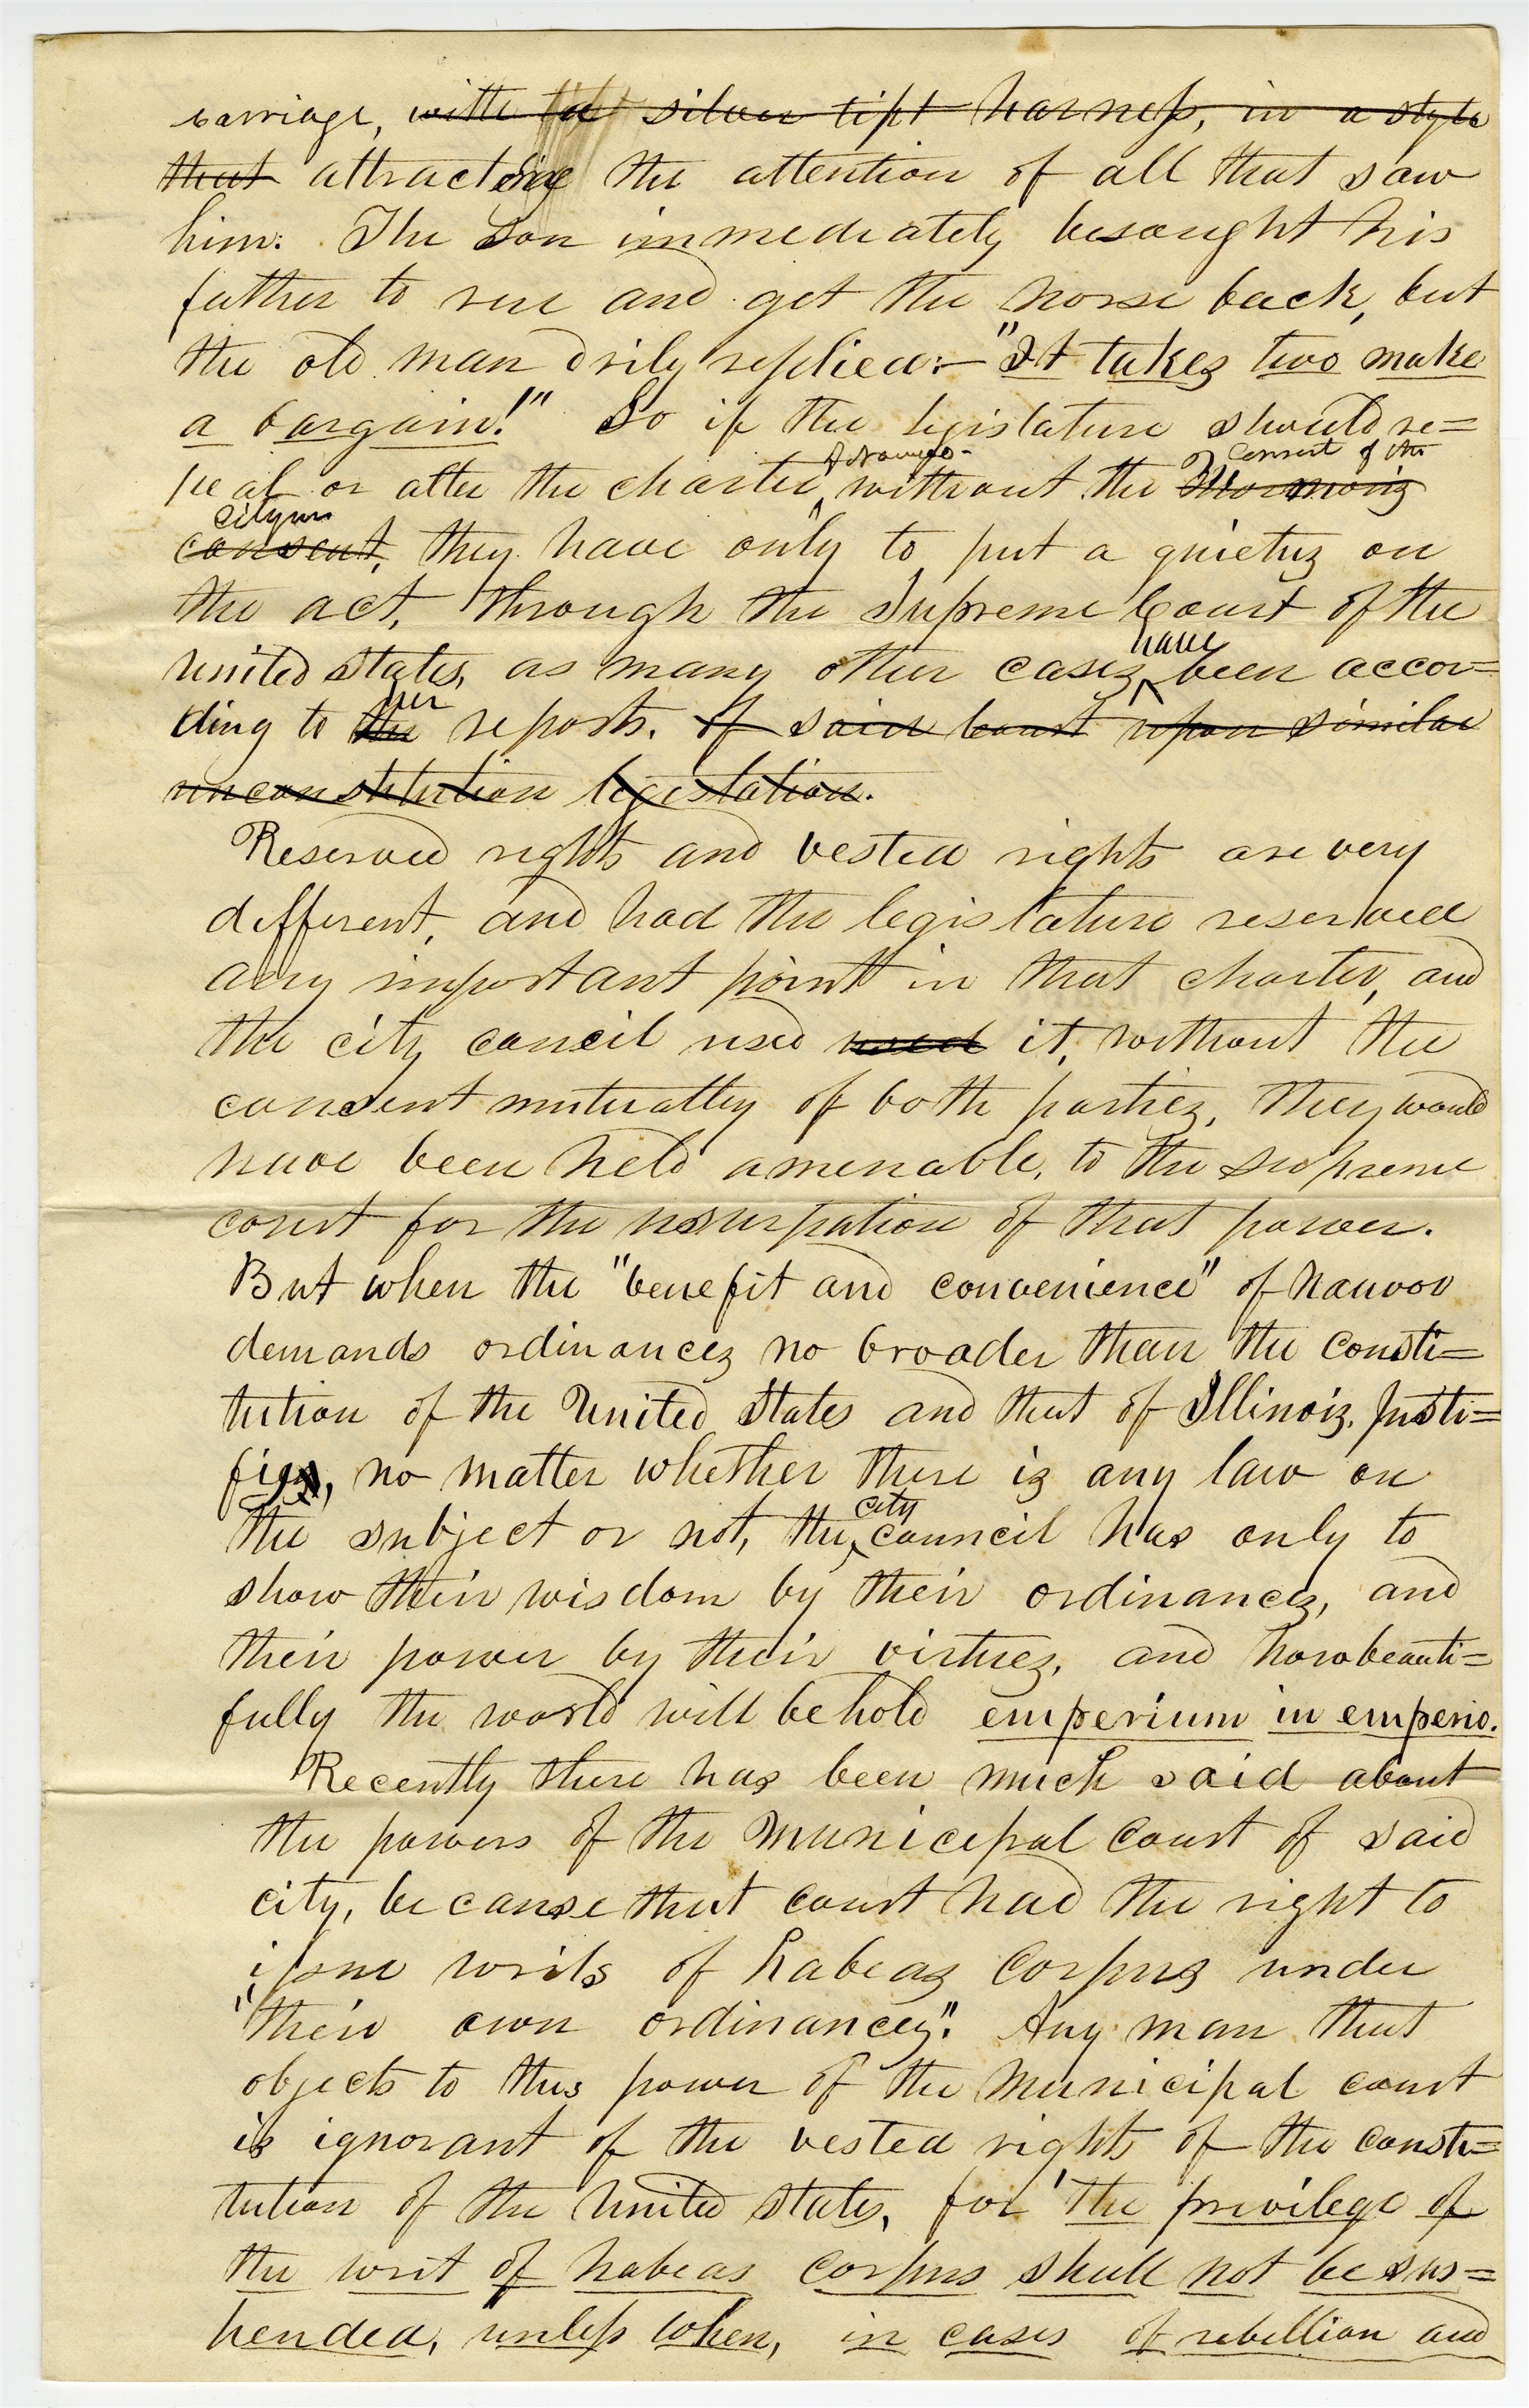 carriage, with tu silver tipt harness, in a style
that attracting the attention of all that saw
him: The son immediately besought his
father to rue and get the horse back, but
the old man drily replied:— "It takes two make
a bargain!" So if the legislature should re=
peal or alter the charter of Nauvoo without the consent of the Mormons
citizens consent, they have only to put a quietuz on
the act, through the Supreme Court of the
United States, as many other casez have been accor=
ding to the her reports. of said court upon similar
unconstitution legistation.
Reserved rights and vested rights are very
different, and had the legislature reserved
any important point in that charter, and
the city council used used it, without the
consent mutually of both partiez, they would
have been held amenable, to the supreme
court for the usurpation of that power.
But when the "benefit and convenience" of Nauvoo
demands ordinancez no broader than the consti=
tution of the United States and that of Illinoiz. justi=
fies, no matter whether there iz any law on
the subject or not, the city council has only to
show their wisdom by their ordinancez, and
their power by their virtuez, and how beauti=
fully the world will behold emperium in emperio.
Recently there has been much said about
the powers of the Municipal Court of said
city, because that court had the right to
issue writs of habeaz Corpuz under
"their own ordinancez". Any man that
objects to this power of the Municipal court
is ignorant of the vested rights of the consti=
tution of the United States, for 'the privilege of
the writ of habeas Corpus shall not be sus=
pended, unless when, in cases of rebellion and